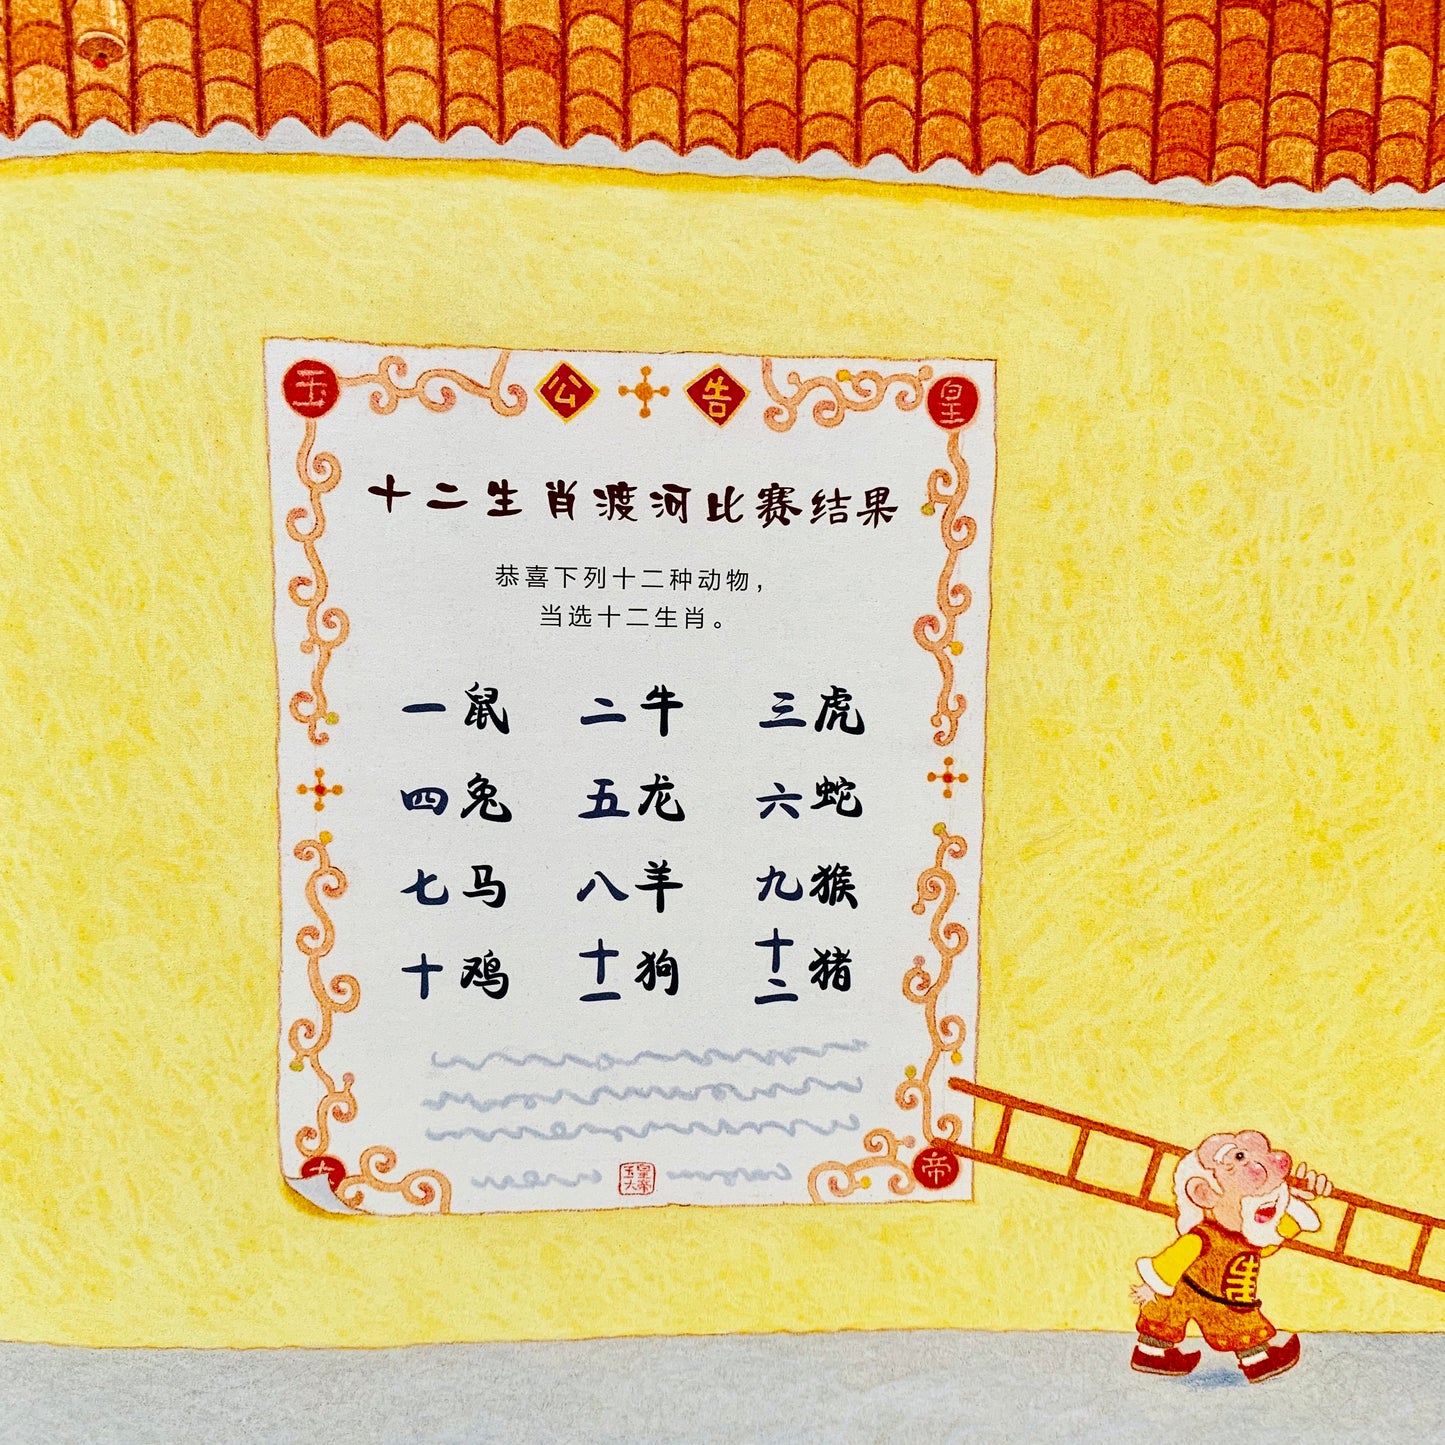 玉 公 告 皇
十二生肖渡河比赛结果
恭喜下列十二种动物，
当选十二生肖。
一鼠 二牛 三虎
四兔 五龙 六蛇
七马 八羊 九猴
十鸡 十一狗 十二猪
帝
玉皇大帝